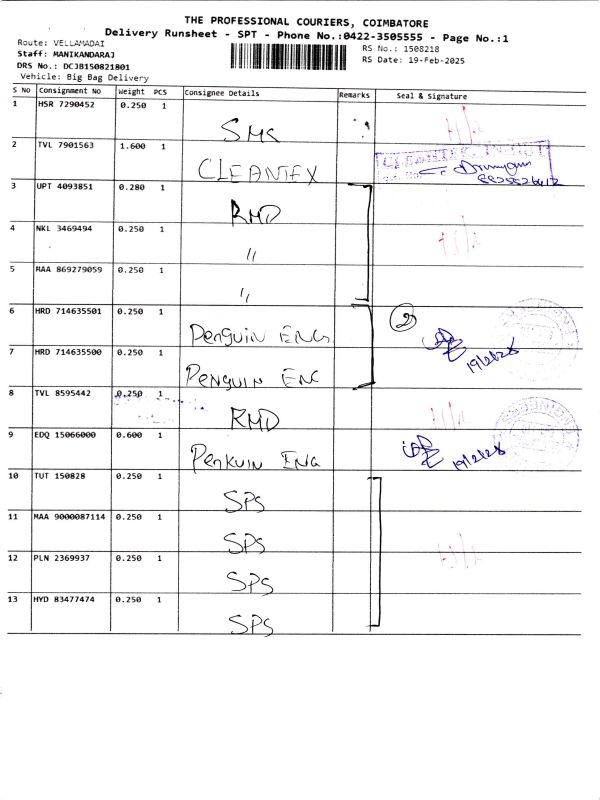 THE PROFESSIONAL COURIERS, COIMBATORE
Delivery Runsheet - SPT - Phone No.:0422-3505555 - Page No.:1
Route: VELLAMADAI
RS No.: 1508218
Staff: MANIKANDARAJ
RS Date: 19-Feb-2025
DRS No.: DCJB150821801
Vehicle: Big Bag Delivery
S No Consignment No Weight PCS Consignee Details Remarks Seal & Signature
1 HSR 7290452 0.250 1
SMS
2 TVL 7901563 1.600 1
CLEANTEX
3 UPT 4093851 0.280 1
RMD
4 NKL 3469494 0.250 1
"
5 MAA 869279059 0.250 1
"
6 HRD 714635501 0.250 1
Penguin ENG 2
7 HRD 714635500 0.250 1
PENGUIN ENG
8 TVL 8595442 0.250 1
RMD
9 EDQ 15066000 0.600 1
Penkuin ENG
10 TUT 150828 0.250 1
SPS
11 MAA 9000087114 0.250 1
SPS
12 PLN 2369937 0.250 1
SPS
13 HYD 83477474 0.250 1
SPS